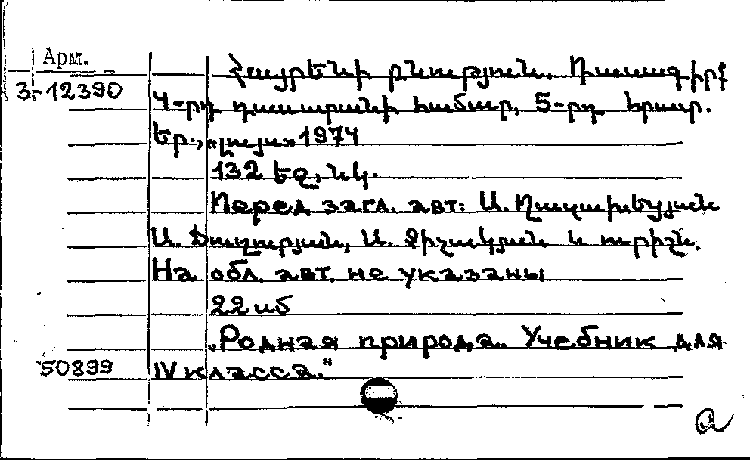 Арм.
Հայրենի բնություն. Դասագիրք
3-12390
4-րդ դասարանի համար, 5-րդ հրատ.
Եր., «Լույս» 1974
132 եջ, նկ.
Перед загл. авт: Ա. Ղազախեցյան
Ա. Զաքարյան, Ա. Չիչակյան և ուրիշն.
На обл. авт. не указаны
22 սմ
„Родная природа. Учебник для
50899 IV класса."
a